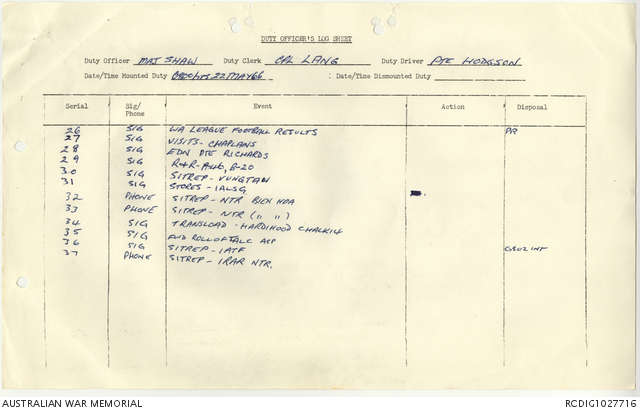 DUTY OFFICER'S LOG SHEET
Duty Officer MAJ SHAW Duty Clerk CPL LANG Duty Driver PTE HODGSON
Date/Time Mounted Duty 0800hrs 22 MAY 66 Date/Time Dismounted Duty
Serial Sig/Phone Event Action Disposal
26 SIG WA LEAGUE FOOTBALL RESULTS PR
27 SIG VISITS - CHAPLANS
28 SIG EDN PTE RICHARDS
29 SIG R&R - AUG, 8-20
30 SIG SITREP - VUNGTAU
31 SIG STORES - 1ALSG
32 PHONE SITREP - NTR BIEN HOA
33 PHONE SITREP - NTR (" ")
34 SIG TRANSLOAD - HARDIHOOD CHALK 14
35 SIG FWD ROLL OF TALC
36 SIG SITREP - 1ATF GRO2 INT
37 PHONE SITREP - 1RAR NTR.
AUSTRALIAN WAR MEMORIAL RCDIG1027716